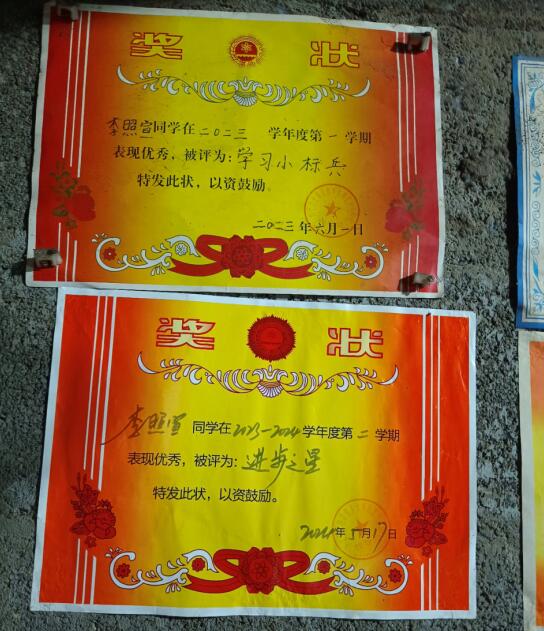 奖 状
李照宣同学在二〇二三 学年度第一学期
表现优秀，被评为：学习小标兵
特发此状，以资鼓励。
二〇二三年六月一日
奖 状
李照宣 同学在2023-2024学年度第二学期
表现优秀，被评为：进步之星
特发此状，以资鼓励。
2024年5月17日